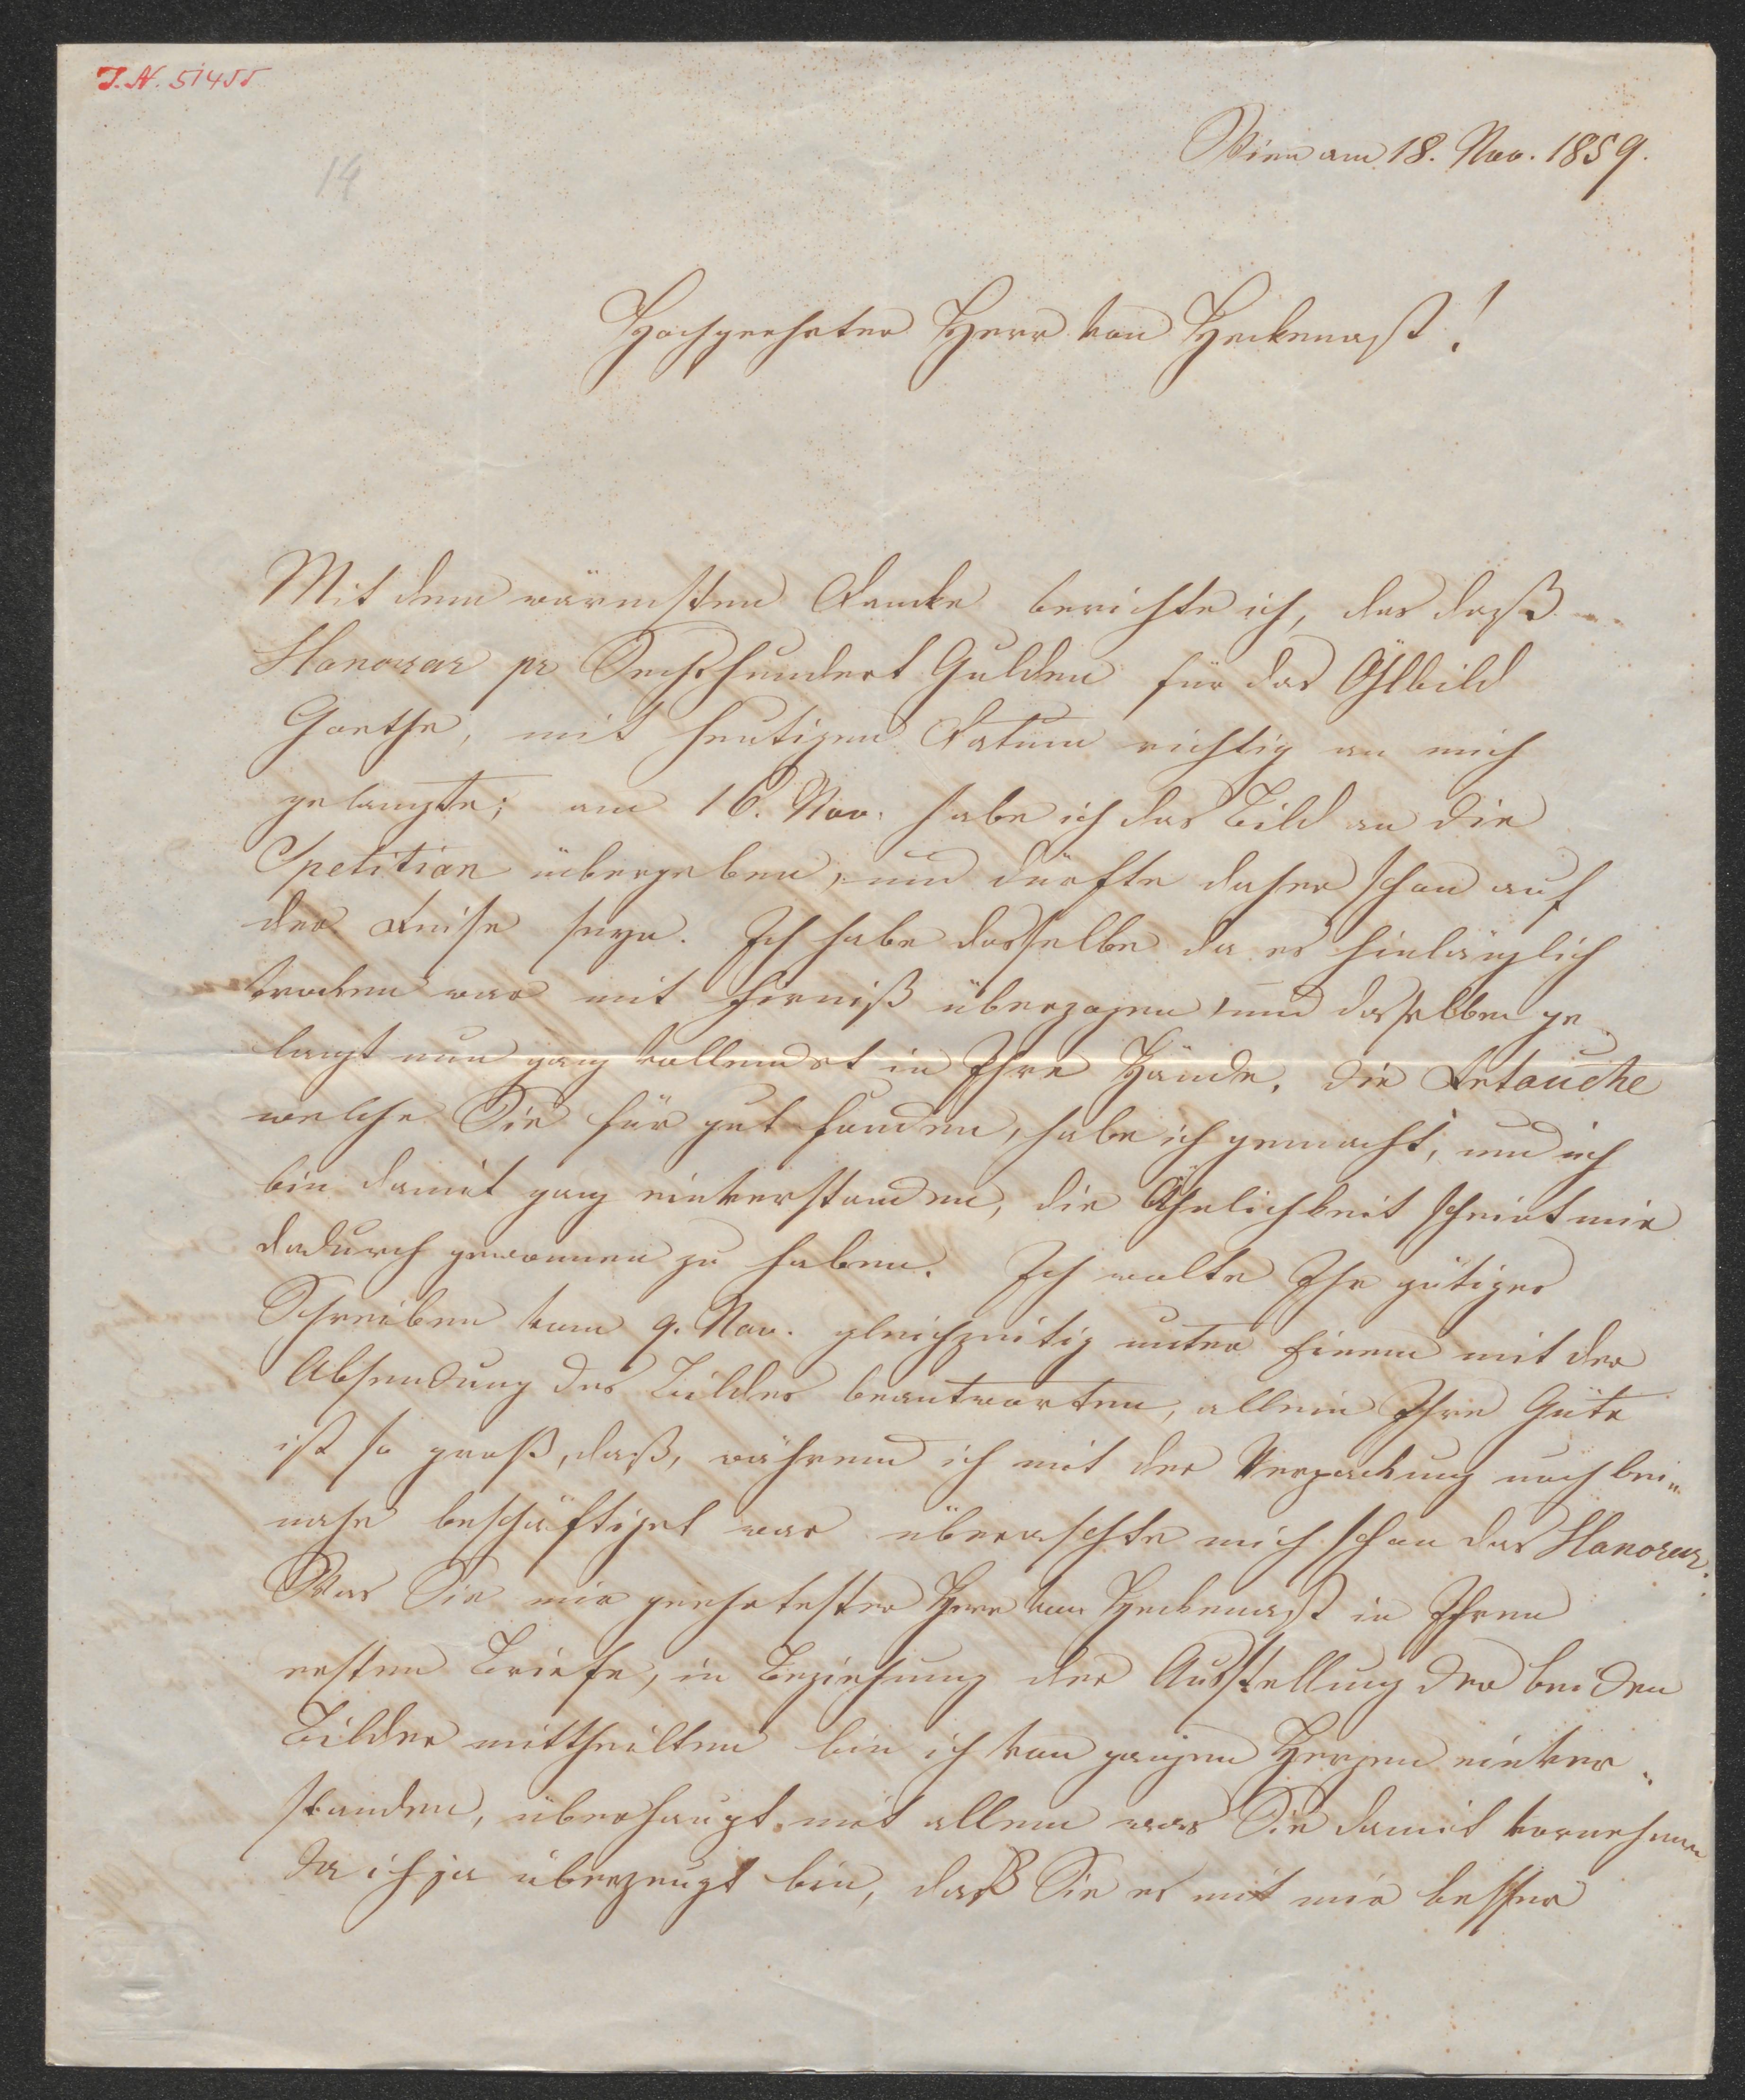 I.N. 51455
14
Wien am 18. Nov. 1859.
Hochgeehrter Herr von Heckenast!
Mit dem wärmsten Danke berichte ich, das daß
Honorar pr Sechshundert Gulden für das Öhlbild
Goethe, mit heutigem Datum richtig an mich
gelangte; am 16. Nov. habe ich das Bild an die
Spetition übergeben, und dürfte daher schon auf
der Reise seyn. Ich habe dasselbe da es hinlänglich
trocken war mit Firniß überzogen und dasselbe ge„
langt nun ganz vollendet in Ihre Hände. Die Retouche
welche Sie für gut fanden, habe ich gemacht, und ich
bin damit ganz einverstanden, die Ähnlichkeit scheint mir
dadurch gewonnen zu haben. Ich wollte Ihr gütiges
Schreiben vom 9. Nov. gleichzeitig unter Einem mit der
Absendung des Bildes beantworten, allein Ihre Güte
ist so groß, daß, während ich mit der Verpackung noch bei„
nahe beschäftiget war überaschte mich schon das Honorar.
Was Sie mir geehrtester Herr von Heckenast in Ihrem
ersten Briefe, in Beziehung der Ausstellung der beiden
Bilder mittheilten bin ich von ganzem Herzen einver„
standen, überhaupt mit allem was Sie damit vornehmen
da ich ja überzeugt bin, daß Sie es mit mir besser